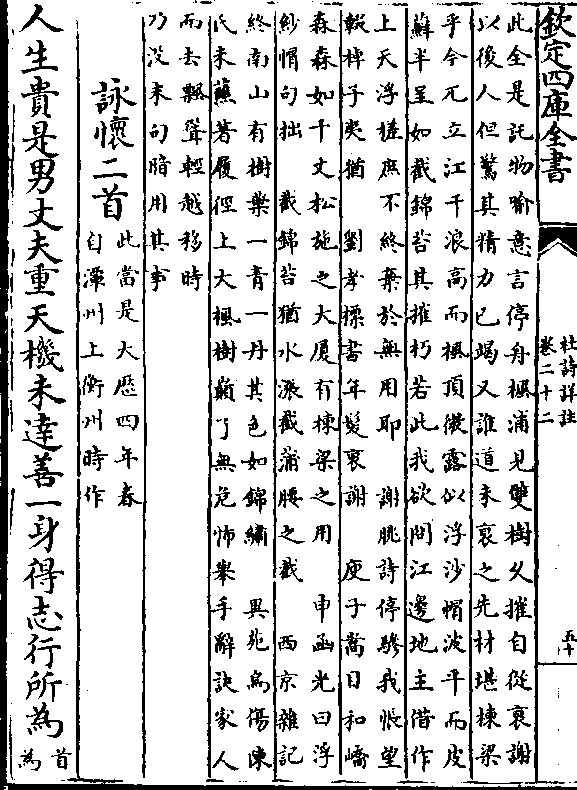 欽定四庫全書
杜詩詳註
卷二十二
五十
此全是託物喻意言停舟楓浦見雙樹久摧自從衰謝
以後人但驚其精力已竭又誰道未衰之先材堪棟梁
乎今兀立江干浪高而楓頂微露似浮沙帽波平而皮
蘚半呈如截錦苔其摧朽若此我欲問江邊地主借作
上天浮槎庶不終棄於無用耶　謝朓詩停驂我悵望
輟棹子夷猶　劉孝標書年髮衰謝　庾子嵩目和嶠
森森如千丈松施之大厦有棟梁之用　申涵光曰浮
紗帽句拙　截錦苔猶水漲截蒲腰之截　西京雜記
終南山有樹葉一青一丹其色如錦繡　異苑烏傷陳
氏未醮著履徑上大楓樹巔了無危怖舉手辭訣家人
而去飄聳輕越移時
乃沒末句暗用其事
詠懷二首
此當是大歷四年春
自潭州上衡州時作
人生貴是男丈夫重天機未達善一身得志行所為
首
為